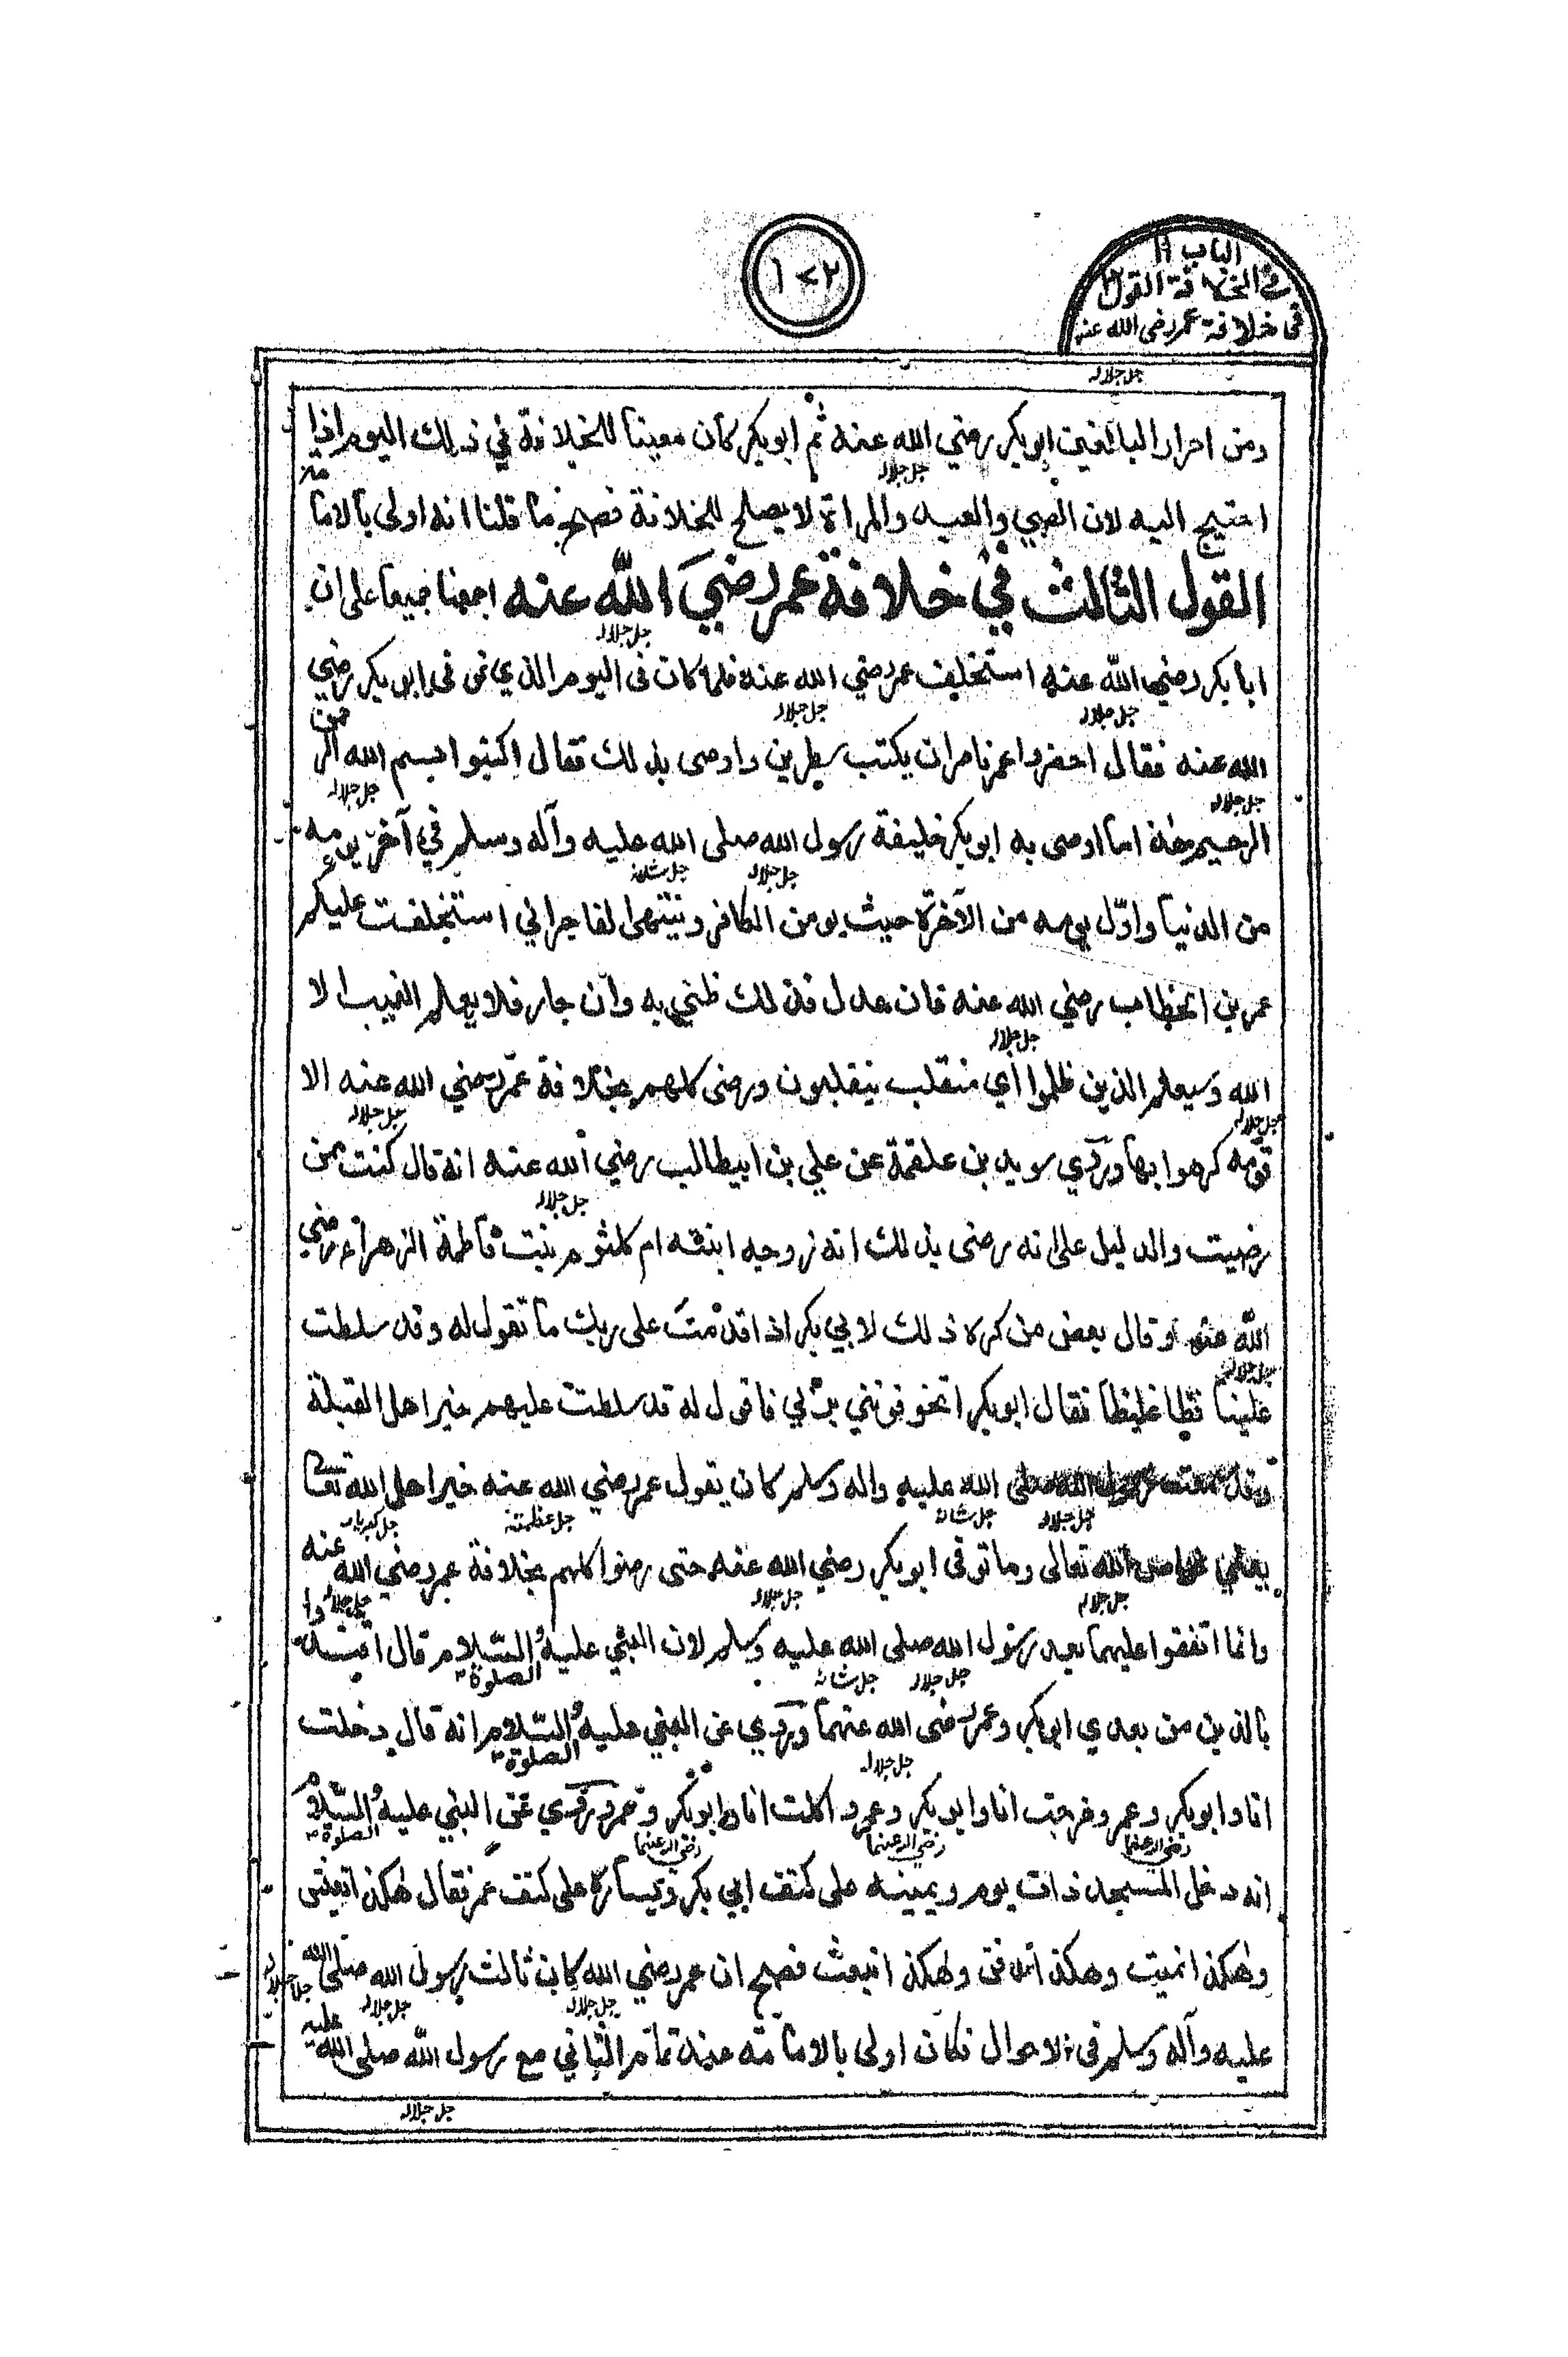 الباب ١١
في الخلافة القول
في خلافة عمر رضى الله عنه
١٧٢
جل جلاله
ومن احرار البالغين ابو بكر رضي الله عنه ثم ابو بكر كان معينا للخلافة في ذلك اليوم اذا
جل جلاله
احتيج اليه لان الصبي والعبد والمراة لا يصلح للخلافة فصح ما قلنا انه اولى بالامامة
القول الثالث في خلافة عمر رضي الله عنه اجمعنا جميعا على ان
جل جلاله
ابا بكر رضي الله عنه استخلف عمر رضي الله عنه فلما كان في اليوم الذي توفى فى ابو بكر رضي
جل جلاله جل جلاله
الله عنه فقال احضروا عمر نامران يكتب سطرين واوصى بذلك فقال اكتبوا بسم الله الرحمن
جل جلاله جل جلاله
الرحيم هذا ما اوصى به ابو بكر خليفة رسول الله صلى الله عليه وآله وسلم في آخر يومه
جل جلاله جل شانه
من الدنيا واوّل يومه من الآخرة حيث يومن الكافر وينتهى الفاجر اني استخلفت عليكم
عمر بن الخطاب رضي الله عنه فان عدل فذلك ظني به وان جار فلا يعلم الغيب الا
جل جلاله
الله وسيعلم الذين ظلموا أي منقلب ينقلبون ورضى كلهم بخلافة عمر رضي الله عنه الا
جل جلاله جل جلاله
قومه كرهوا بها وروي سويد بن علقمة عن علي بن ابيطالب رضي الله عنه انه قال كنت ممن
جل جلاله
رضيت والدليل على انه رضى بذلك انه زوجه ابنته ام كلثوم بنت فاطمة الزهراء رضي
الله عنه وقال بعض من كره ذلك لابي بكر اذا قدمت على ربك ما تقول له وقد سلطت
جل جلاله
علينا فظا غليظا فقال ابو بكر اتخوفونني بربي فاقول له قد سلطت عليهم خير اهل القبلة
وقد سمعت رسول الله صلى الله عليه واله وسلم كان يقول عمر رضي الله عنه خير اهل الله تعالى
جل جلاله جل شانه جل عظمته جل كبرياءه
يعني الله تعالى وما توفى ابو بكر رضي الله عنه حتى رضوا كلهم بخلافة عمر رضي الله عنه
جل جلاله جل جلاله جل جلاله
وانما اتفقوا عليهما بعد رسول الله صلى الله عليه وسلم لان النبي عليه الصلوة السلام قال اقتدوا
جل جلاله جل شانه
بالذين من بعدي ابو بكر وعمر رضى الله عنهما وروي عن النبي عليه الصلوة السلام انه قال دخلت
جل جلاله
انا وابو بكر وعمر وخرجت انا وابو بكر وعمر واكلت انا وابو بكر وعمر وروي عن النبي عليه الصلوة السلام
رضي الله عنهما رضي الله عنهما رضي الله عنهما
انه دخل المسجد ذات يوم ويمينه على كتف ابي بكر ويساره على كتف عمر فقال هكذا نعيش
وهكذا نميت وهكذا ندفن وهكذا نبعث فصح ان عمر رضي الله كان ثالث رسول الله صلى الله
جل جلاله جل جلاله جل جلاله
عليه وآله وسلم في الاحوال فكان اولى بالامامة عنه تمام الثاني مع رسول الله صلى الله عليه
جل جلاله